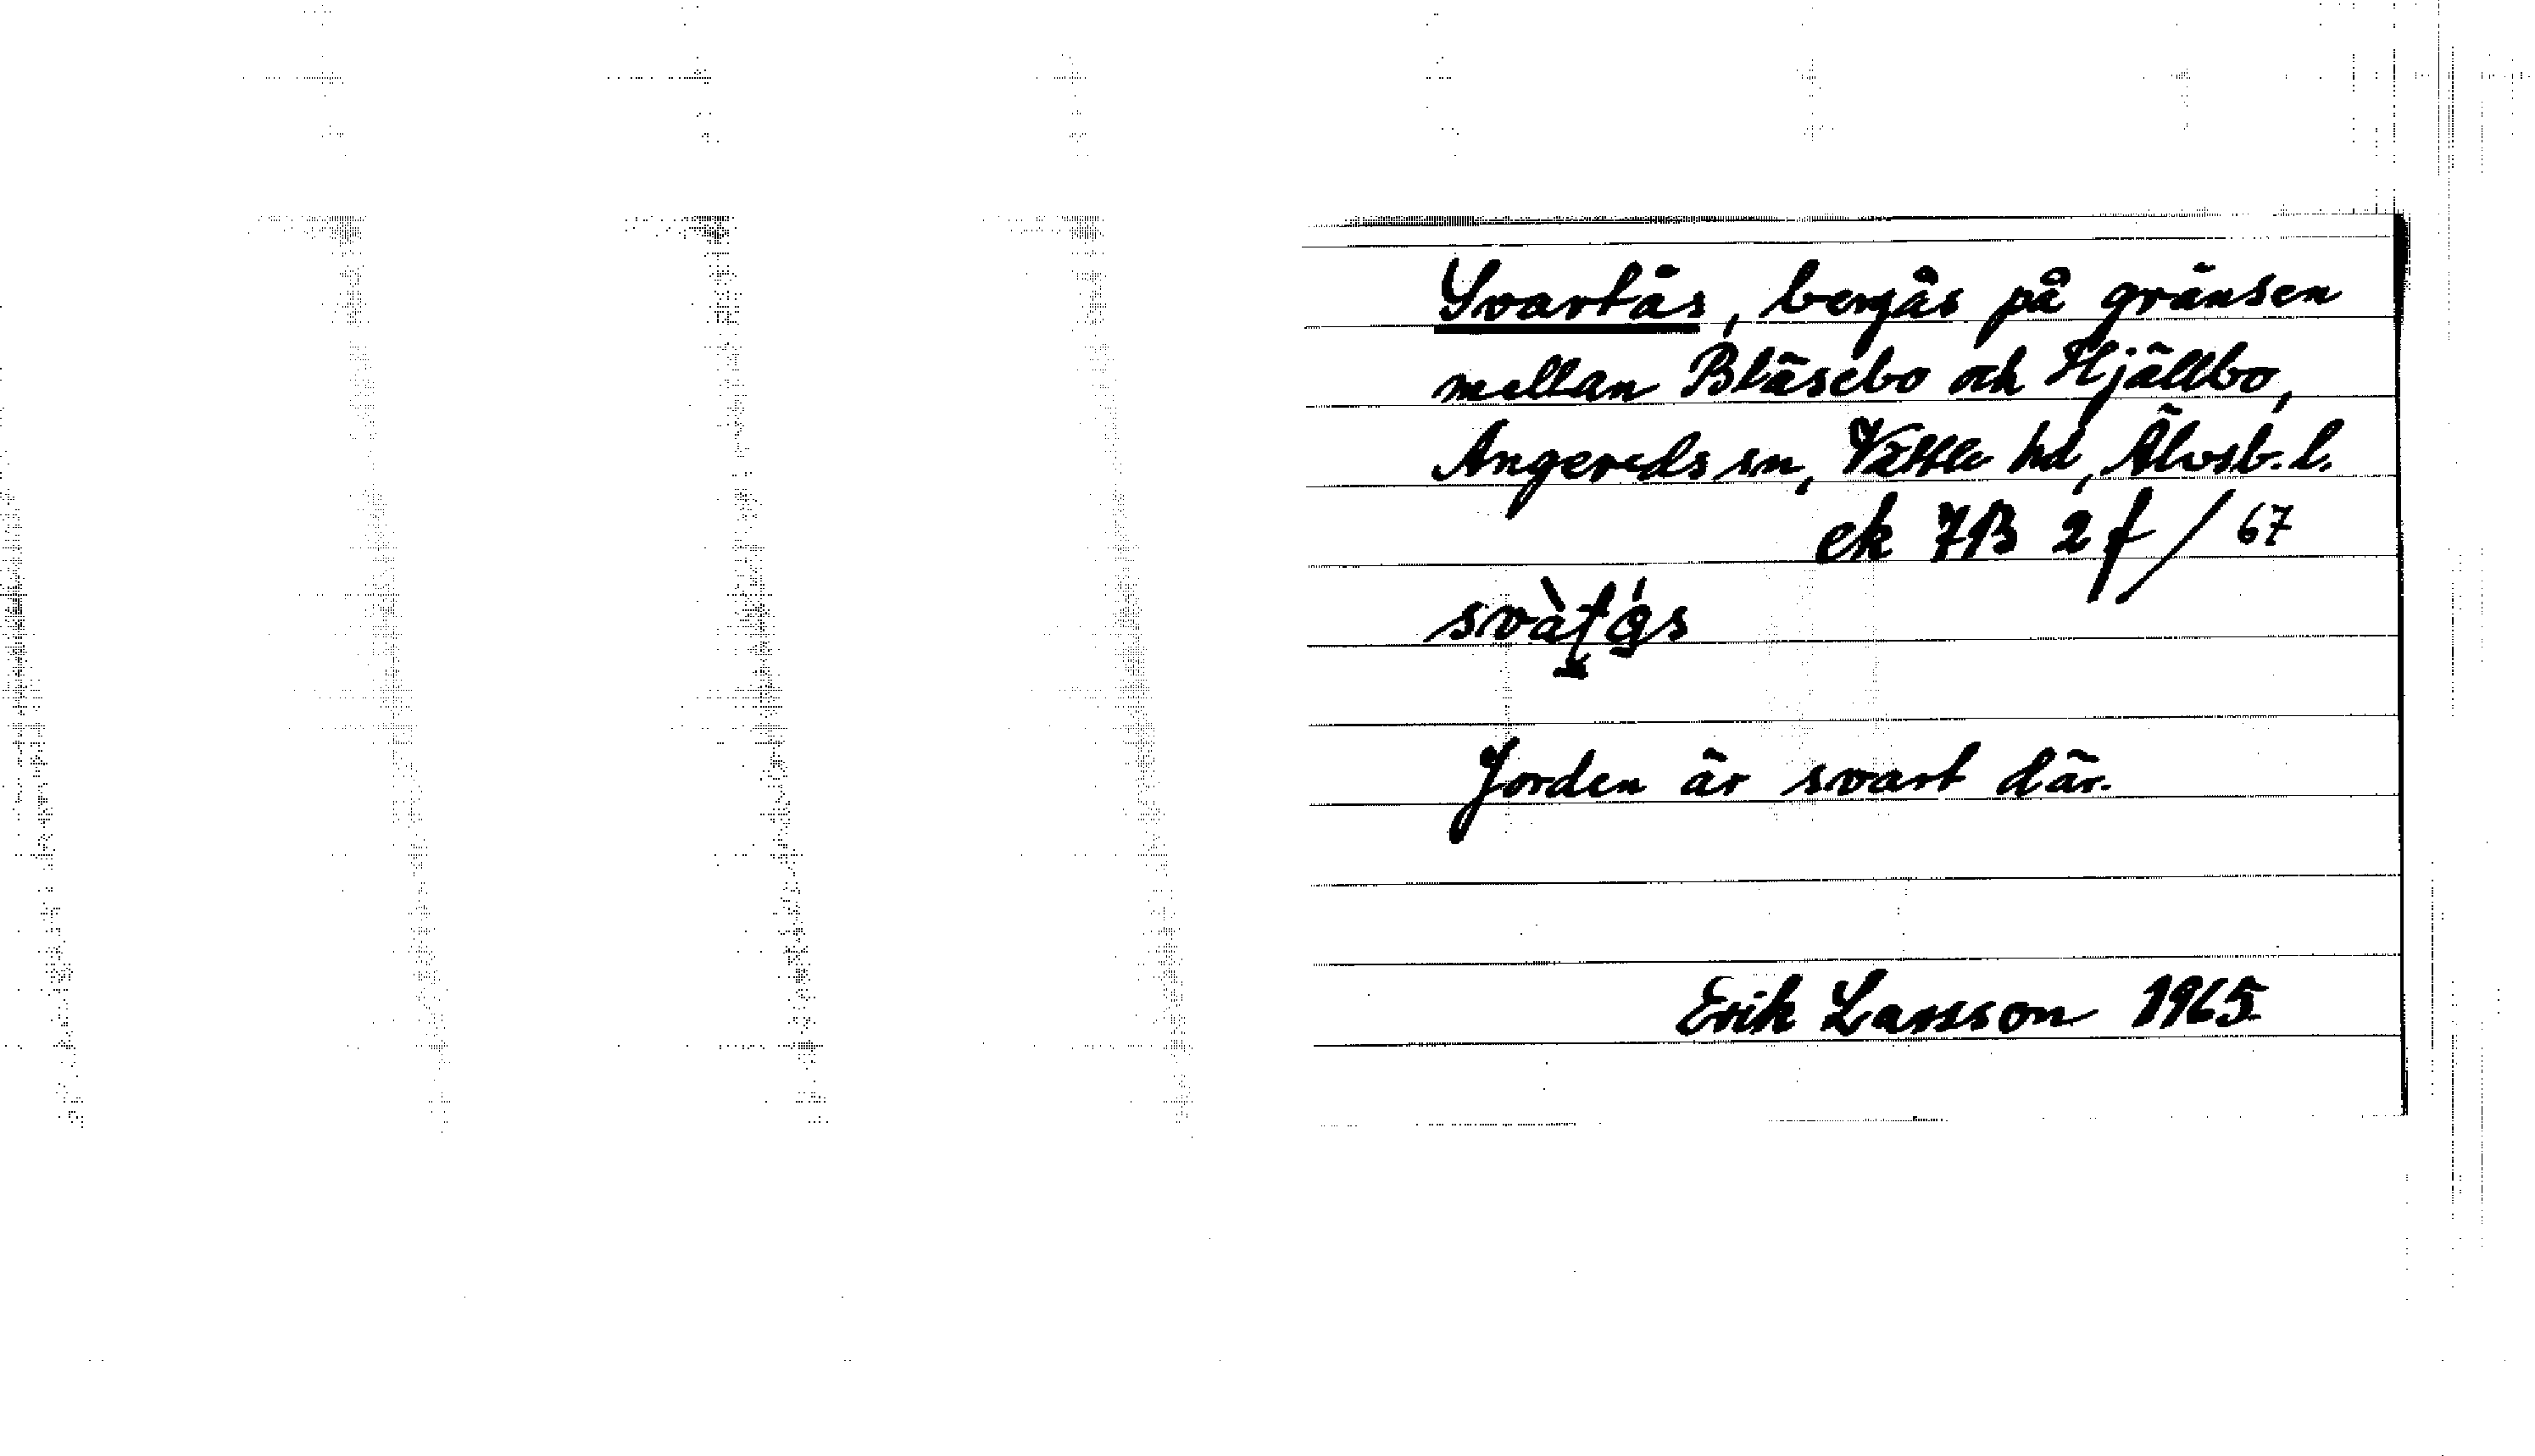 Svartås, bergås på gränsen
mellan Bläsebo och Hjällbo,
Angereds sn, Vättle hd, Älvsb. l.
ek 7B 2f/67
Jorden är svart där.
Erik Larsson 1965